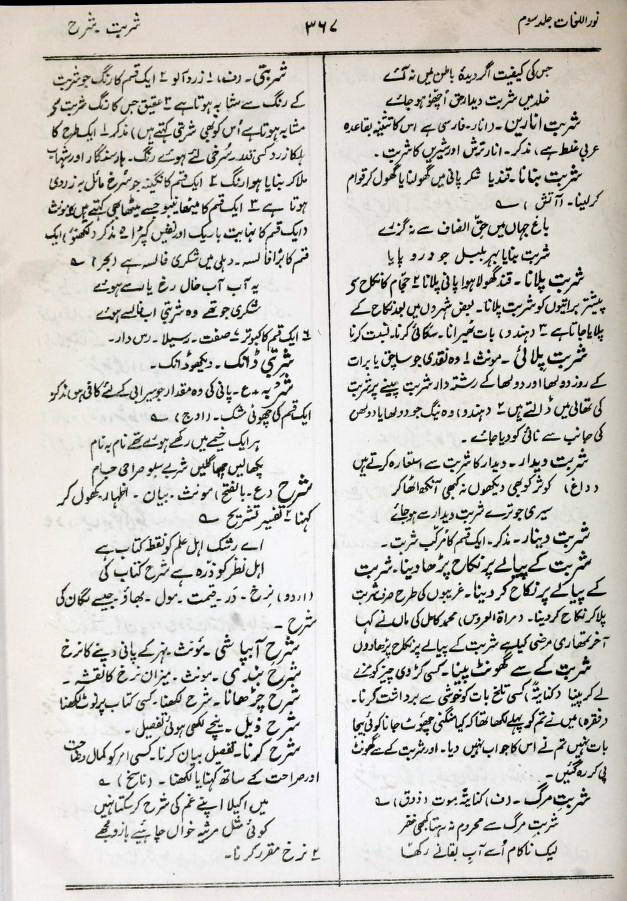 نور اللغات جلد سوم
۳۶۷
شربت - شرح
جس کی کیفیت اگر دیدۂ باطن میں نہ آئے
خلد میں شربت دیدار حق اچھّو ہو جائے
شربت انارین - دانار - فارسی ہے اس کا تثنیہ بقاعدہ
عربی غلط ہے، مذکر - انار ترش اور شیریں کا شربت -
شربت بنانا - قند یا شکر پانی میں گھولنا یا گھول کر قوام
کر لینا - (آتش) ؎
باغ جہاں میں حقّ انصاف سے نہ گزرے
شربت بنایا بہر بلبل جو ورد پایا
شربت پلانا - قند گھولا ہوا پانی پلانا ۲ حجّام کا نکاح سے
پیشتر براتیوں کو شربت پلانا - بعض شہروں میں بعد نکاح کے
پلایا جاتا ہے ۳ (ہندو) بات ٹھہرانا - سگائی کرنا - نسبت کرنا
شربت پلائی - مونث ۱ وہ نقدی جو ساچق یا برات
کے روز دولھا اور دولھا کے رشتہ دار شربت پینے پر شربت
کی تھالی میں ڈالتے ہیں ۲ (ہندو) وہ نیگ جو دولھا یا دولھن
کی جانب سے نائی کو دیا جائے -
شربت دیدار - دیدار کا شربت سے استعارہ کرتے ہیں
(داغ) کوثر کو بھی دیکھوں نہ کبھی آنکھ اٹھا کر
سیری جو ترے شربت دیدار سے ہو جائے
شربت دینار - مذکر - ایک قسم کا مرکّب شربت -
شربت کے پیالے پر نکاح پڑھا دینا - شربت
کے پیالے پر نکاح کر دینا - غریبوں کی طرح صرف شربت
پلا کر نکاح کر دینا - (مراۃ العروس) محمد کامل کی ماں نے کہا
آخر تمھاری مرضی کیا ہے شربت کے پیالے پر نکاح پڑھا دوں
شربت کے سے گھونٹ پینا - کسی کڑوی چیز کو مزے
لے کر پینا (کنایۃً) کسی تلخ بات کو خوشی سے برداشت کرنا -
(فقرہ) میں نے تم کو پہلے لکھا تھا کہ کیا منگنی چھوٹ جانا کوئی بیجا
بات نہیں تم نے اس کا جواب نہیں دیا - اور شربت کے سے گھونٹ
پی کر رہ گئیں -
شربت مرگ - (ف) کنایۃً موت (ذوق) ؎
شربت مرگ سے محروم نہ رہتا کبھی خضر
لیک ناکام اسے آب بقا نے رکھا
شربتی - (ف) ۱ زرد آلو ۲ ایک قسم کا رنگ جو شربت
کے رنگ سے مشابہ ہوتا ہے ۳ عقیق جس کا رنگ شربت سے
مشابہ ہوتا ہے اُس کو بھی شربتی کہتے ہیں) مذکر ۱ ایک طرح کا
ہلکا زرد کسی قدر سرخی لئے ہوئے رنگ - ہار سنگار اور شہاب
ملا کر بنایا ہوا رنگ ۲ ایک قسم کا نگینہ جو سُرخ مائل بہ زردی
ہوتا ہے ۳ ایک قسم کا میٹھا نیبو جسے میٹھا بھی کہتے ہیں ۴ مونث
ایک قسم کا نہایت باریک اور نفیس کپڑا ۵ مذکر (لکھنؤ) ایک
قسم کا بڑا فالسہ - دہلی میں شکری فالسہ ہے (بحر) ؎
یہ آب آب خال رخ یار سے ہوئے
شکری جو تھے وہ شربتی اب فالسے ہوئے
۶ ایک قسم کا کبوتر ۷ صفت - رسیلا - رس دار -
شربتی ڈانک - دیکھو ڈانک -
شربہ - ع - پانی کی وہ مقدار جو سیرابی کے لئے کافی ہو، مذکر
ایک قسم کی چھوٹی مشک - (اوج) ؎
ہر ایک خیمے میں رکھے ہوئے تھے نام بہ نام
پکھالیں چھاگلیں شربے سبو صراحی جام
شرح (ع - بالفتح) مونث - بیان - اظہار - کھول کر
کہنا ۲ تفسیر تشریح ؎
اے رشک اہل علم کو نقطہ کتاب ہے
اہل نظر کو ذرّہ ہے شرح کتاب کی
(اردو) نرخ - در - قیمت - مول - بھاؤ - جیسے لگان کی
شرح -
شرح آبپاشی - مونث - نہر کے پانی دینے کا نرخ
شرح بندی - مونث - میزان نرخ کا نقشہ -
شرح چڑھانا - شرح لکھنا - کسی کتاب پر نوٹ لکھنا
شرح ذیل - نیچے لکھی ہوئی تفصیل -
شرح کرنا - تفصیل بیان کرنا - کسی امر کو کمال وضاحت
اور صراحت کے ساتھ کہنا یا لکھنا - (ناسخ) ؎
میں اکیلا اپنے غم کی شرح کر سکتا نہیں
کوئی مثل مرثیہ خواں چاہئے بازو مجھے
۲ نرخ مقرر کرنا -